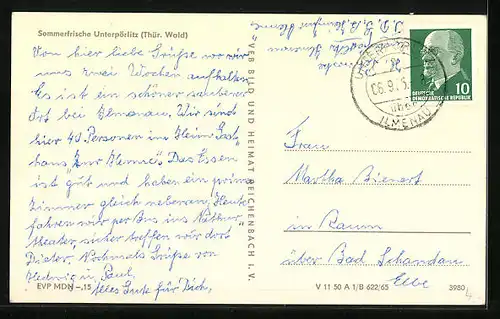 Sommerfrische Unterpörlitz (Thür. Wald)
Von hier liebe Grüße wo wir
uns zwei Wochen aufhalten.
Es ist ein schöner sauberer
Ort bei Ilmenau. Wir sind
hier 40 Personen im Heim Gast
haus "Zur Henne". Das Essen
ist gut und haben ein prima
Zimmer gleich nebenan. Heute
fahren wir per Bus ins
theater, sicher treffen wir dort
Dieter. Nochmals Grüße von
Hedwig u. Paul.
Alles Gute für Dich,
EVP MDN –,15
VEB BILD UND HEIMAT REICHENBACH I. V.
ILMENAU
DEUTSCHE
DEMOKRATISCHE REPUBLIK
10
Frau
Martha Bienert
in Raum
über Bad Schandau
Elbe
V 11 50 A 1/B 622/65
3980